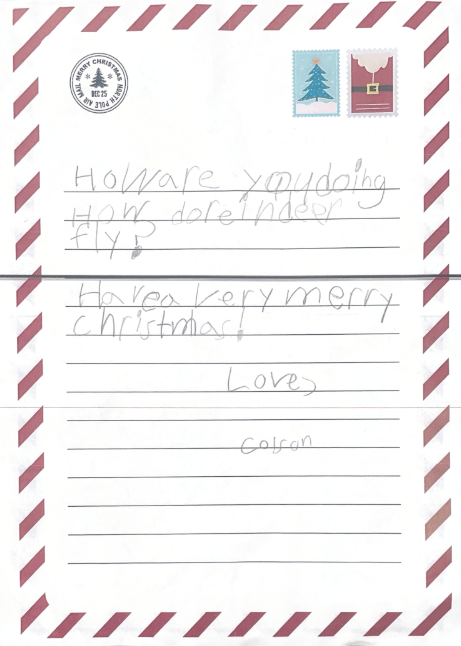 MERRY CHRISTMAS
DEC 25
NORTH POLE AIR MAIL
How are you doing
How do reindeer
fly?
Have a very merry
christmas!
Love,
Colson